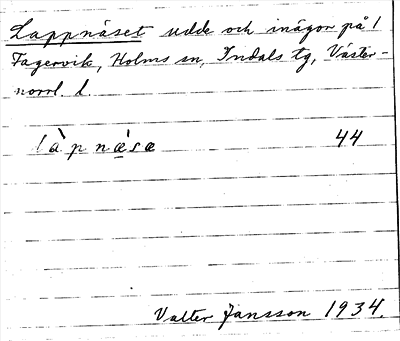 Lappnäset udde och inägor på /
Fagervik, Holms sn, Indals tg, Väster-
norrl. l.
làpnæ̀sæ 44
Valter Jansson 1934.